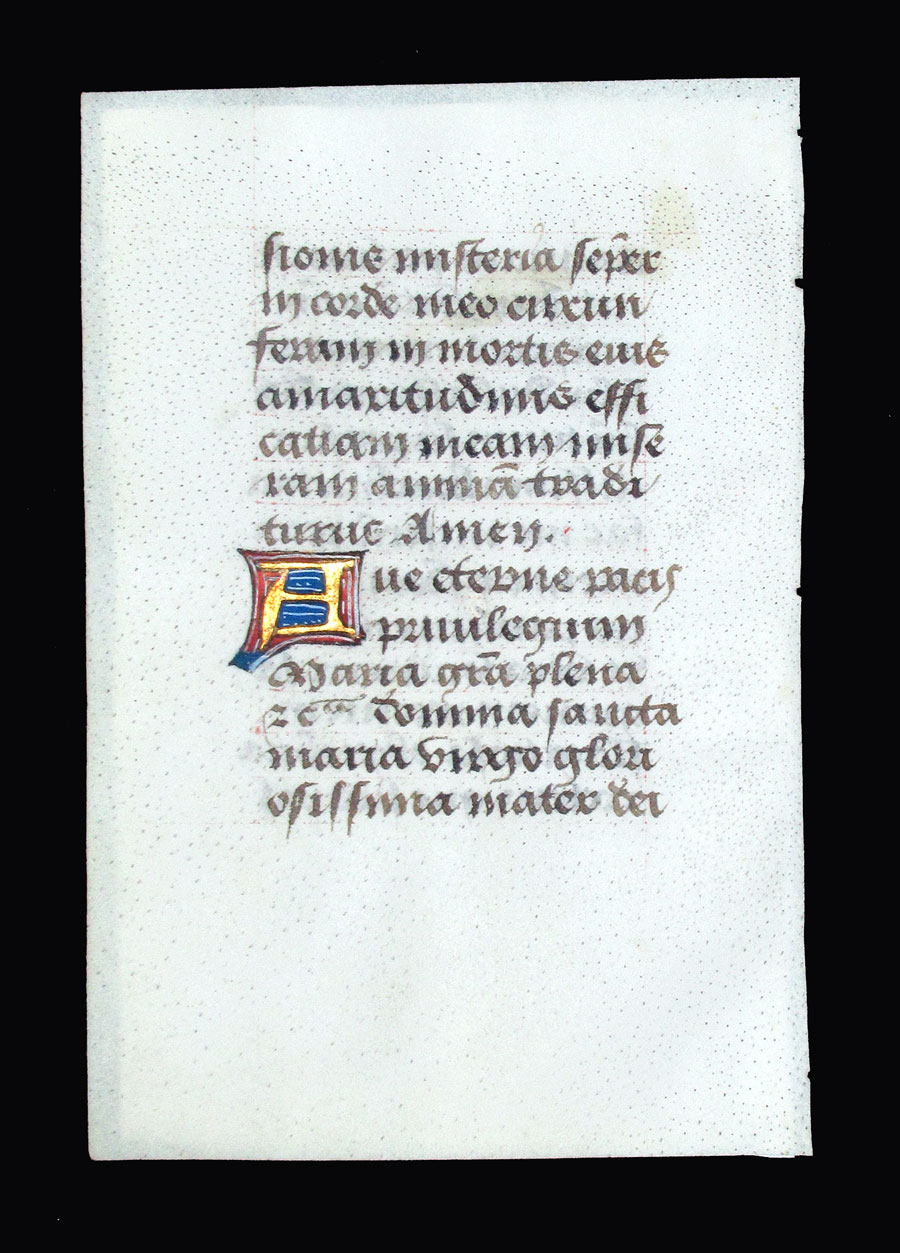 sionis misteria sep̄er
in corde meo circun
feram in mortis eius
amaritudinis effi
catiam meam mise
ram animā tradi
turus Amen.
Aue eterne pacis
priuilegium
Maria gr̄a plena
⁊ cͣ domina sancta
maria virgo glori
osissima mater dei